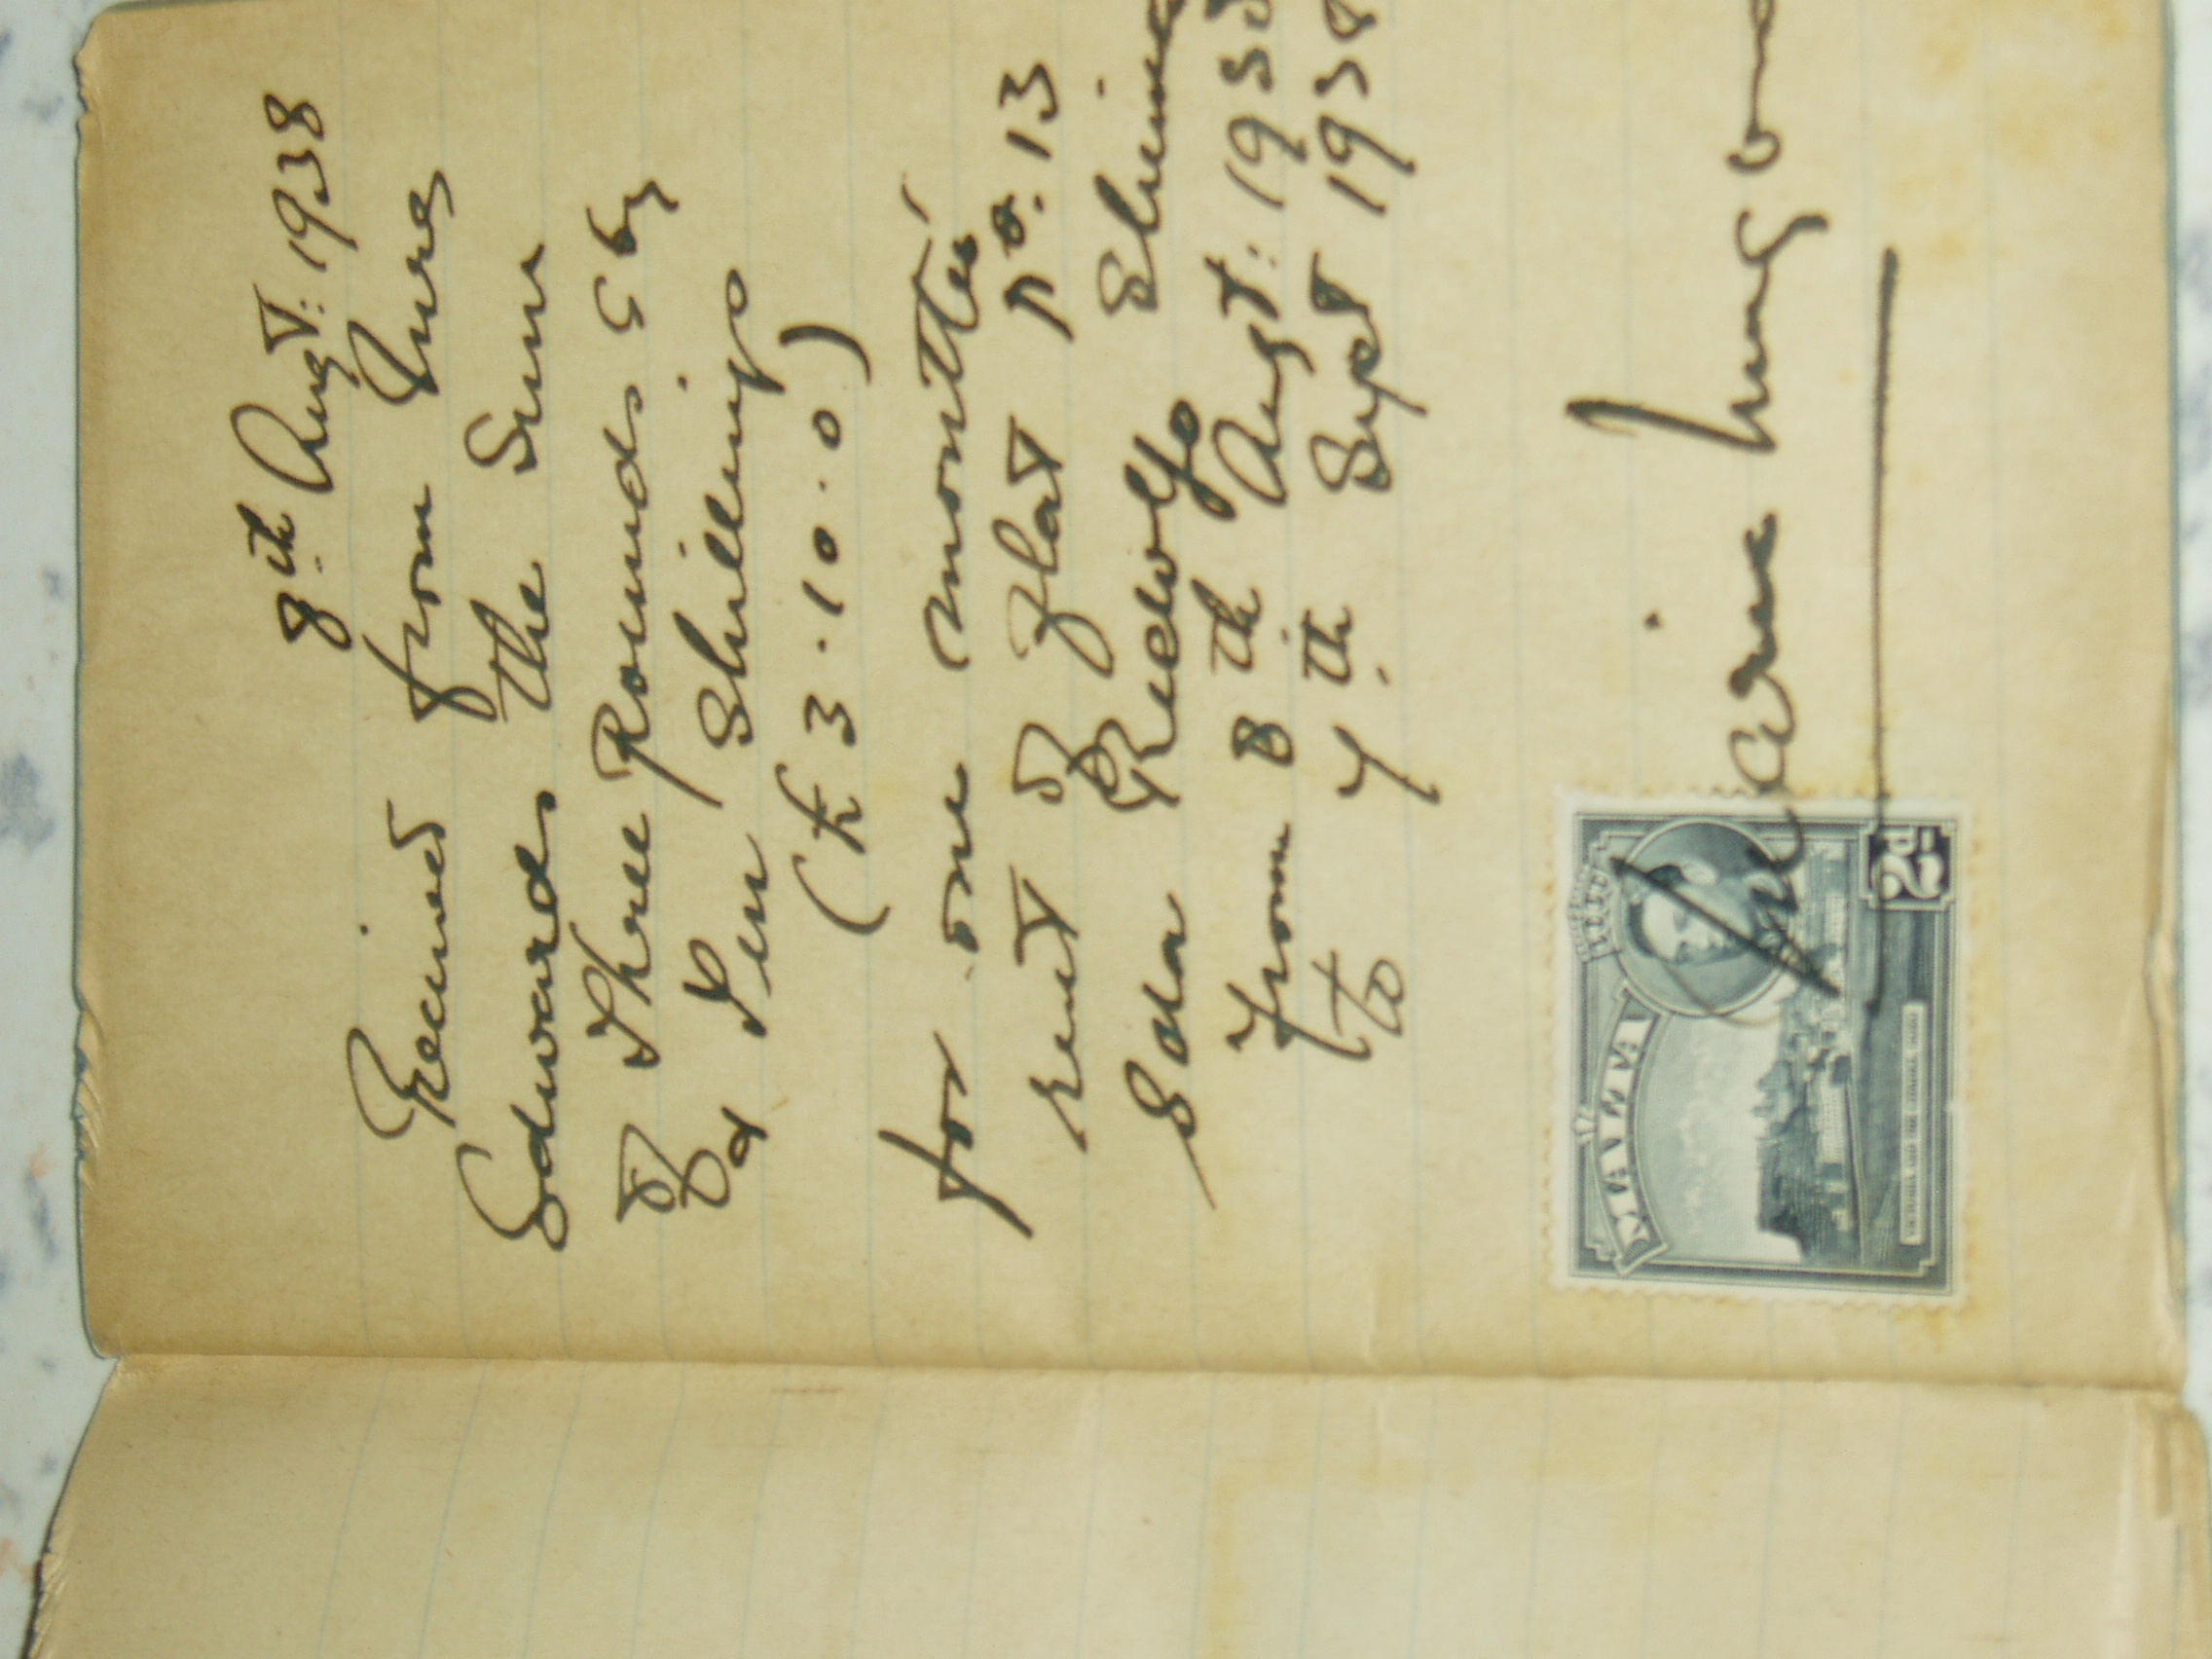 8th Augt: 1938
Received from Mres
Edwards the Sum
of Three Pounds Stg
& Ten Shillings
(£3.10.0)
for one month's
rent of Flat No. 13
Sda Reevolfo Sliema
From 8th Augt: 1938
to 7th Sept 1938
MALTA
2D